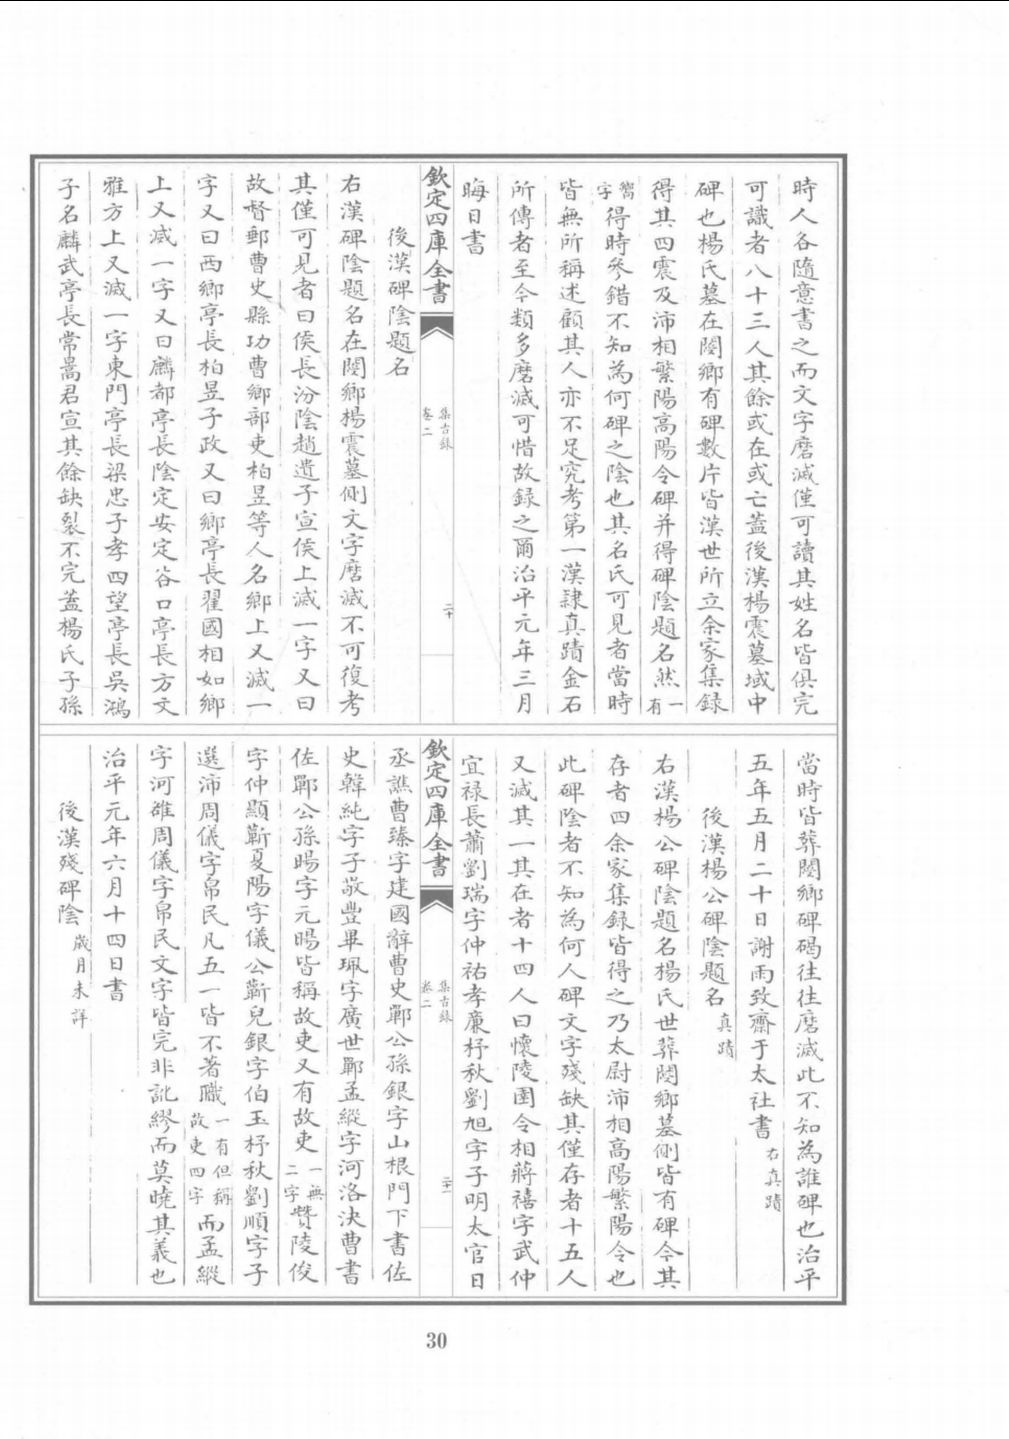 時人各隨意書之而文字磨滅僅可讀其姓名皆俱完
可識者八十三人其餘或在或亡蓋後漢楊震墓域中
碑也楊氏墓在閿鄉有碑數片皆漢世所立余家集録
得其四震及沛相繁陽高陽令碑并得碑陰題名然一有
嚮字得時參錯不知為何碑之陰也其名氏可見者當時
皆無所稱述顧其人亦不足究考第一漢隷真蹟金石
所傳者至今類多磨滅可惜故録之爾治平元年三月
晦日書
欽定四庫全書
集古録
卷二
二十
後漢碑陰題名
右漢碑陰題名在閿鄉楊震墓側文字磨滅不可復考
其僅可見者曰侯長汾陰趙遺子宣侯上滅一字又曰
故督郵曹史縣功曹鄉部吏柏昱等人名鄉上又滅一
字又曰西鄉亭長柏昱子政又曰鄉亭長翟國相如鄉
上又滅一字又曰麟都亭長陰定安定谷口亭長方文
雅方上又滅一字東門亭長梁忠子孝四望亭長吳鴻
子名麟武亭長常暠君宣其餘缺裂不完蓋楊氏子孫
當時皆葬閿鄉碑碣往往磨滅此不知為誰碑也治平
五年五月二十日謝雨致齋于太社書右真蹟
後漢楊公碑陰題名真蹟
右漢楊公碑陰題名楊氏世葬閿鄉墓側皆有碑今其
存者四余家集録皆得之乃太尉沛相高陽繁陽令也
此碑陰者不知為何人碑文字殘缺其僅存者十五人
又滅其一其在者十四人曰懷陵圉令相蔣禧字武仲
宜禄長蕭劉瑞字仲祐孝廉杼秋劉旭字子明太官日
欽定四庫全書
集古録
卷二
二十一
丞譙曹臻字建國辭曹史鄲公孫銀字山根門下書佐
史韓純字子敬豐畢珮字廣世鄲孟縱字河洛決曹書
佐鄲公孫暘字元暘皆稱故吏又有故吏一無二字贊陵俊
字仲顯蘄夏陽字儀公蘄兒銀字伯玉杼秋劉順字子
選沛周儀字帛民凡五一皆不著職一有但稱故吏四字而孟縱
字河雒周儀字帛民文字皆完非訛繆而莫曉其義也
治平元年六月十四日書
後漢殘碑陰歲月未詳
30